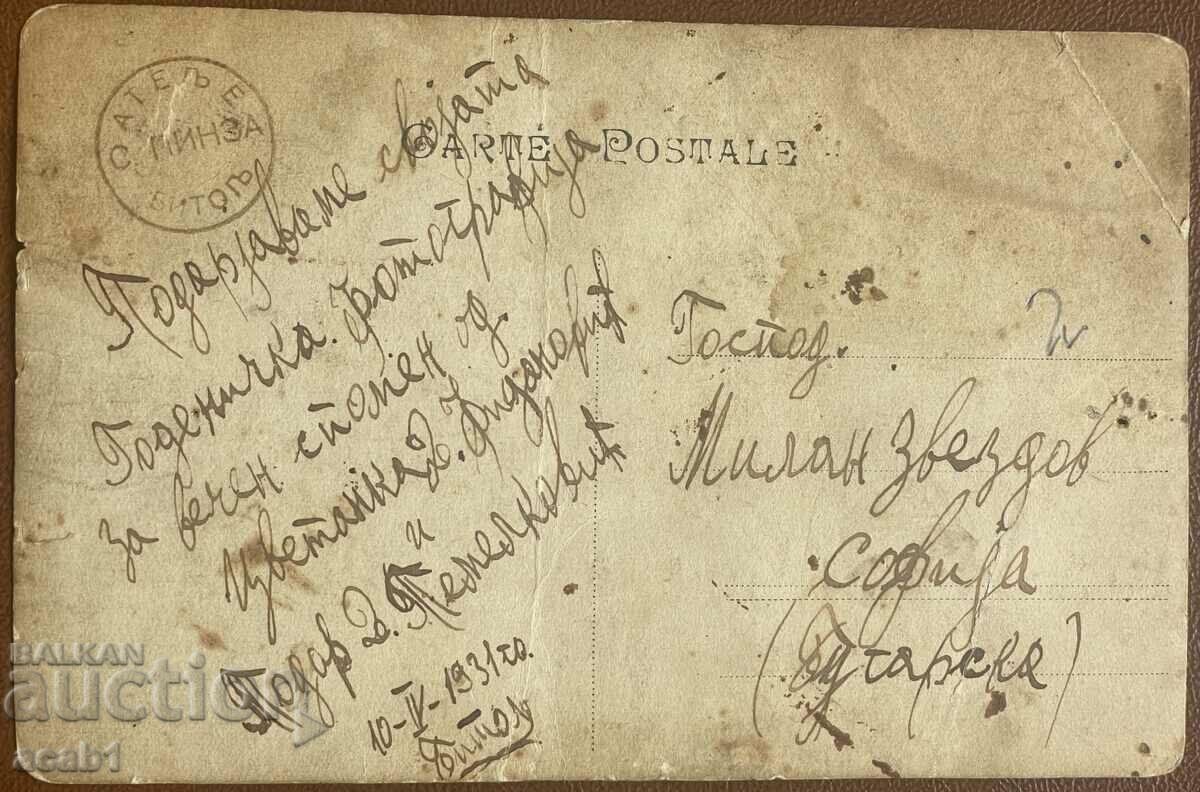 АТЕЉЕ
С. ПИНЗА
БИТОЉ
CARTE POSTALE
Подарјаваме својата
Годеничка. Фотографија
за вечен спомен од.
Цветанка Д.
и
Тодор Д.
10-IV-1931 го.
Битољ
Господ.
Милан Звездов
Софија
(Бугарска)
BALKAN
auction
acab1